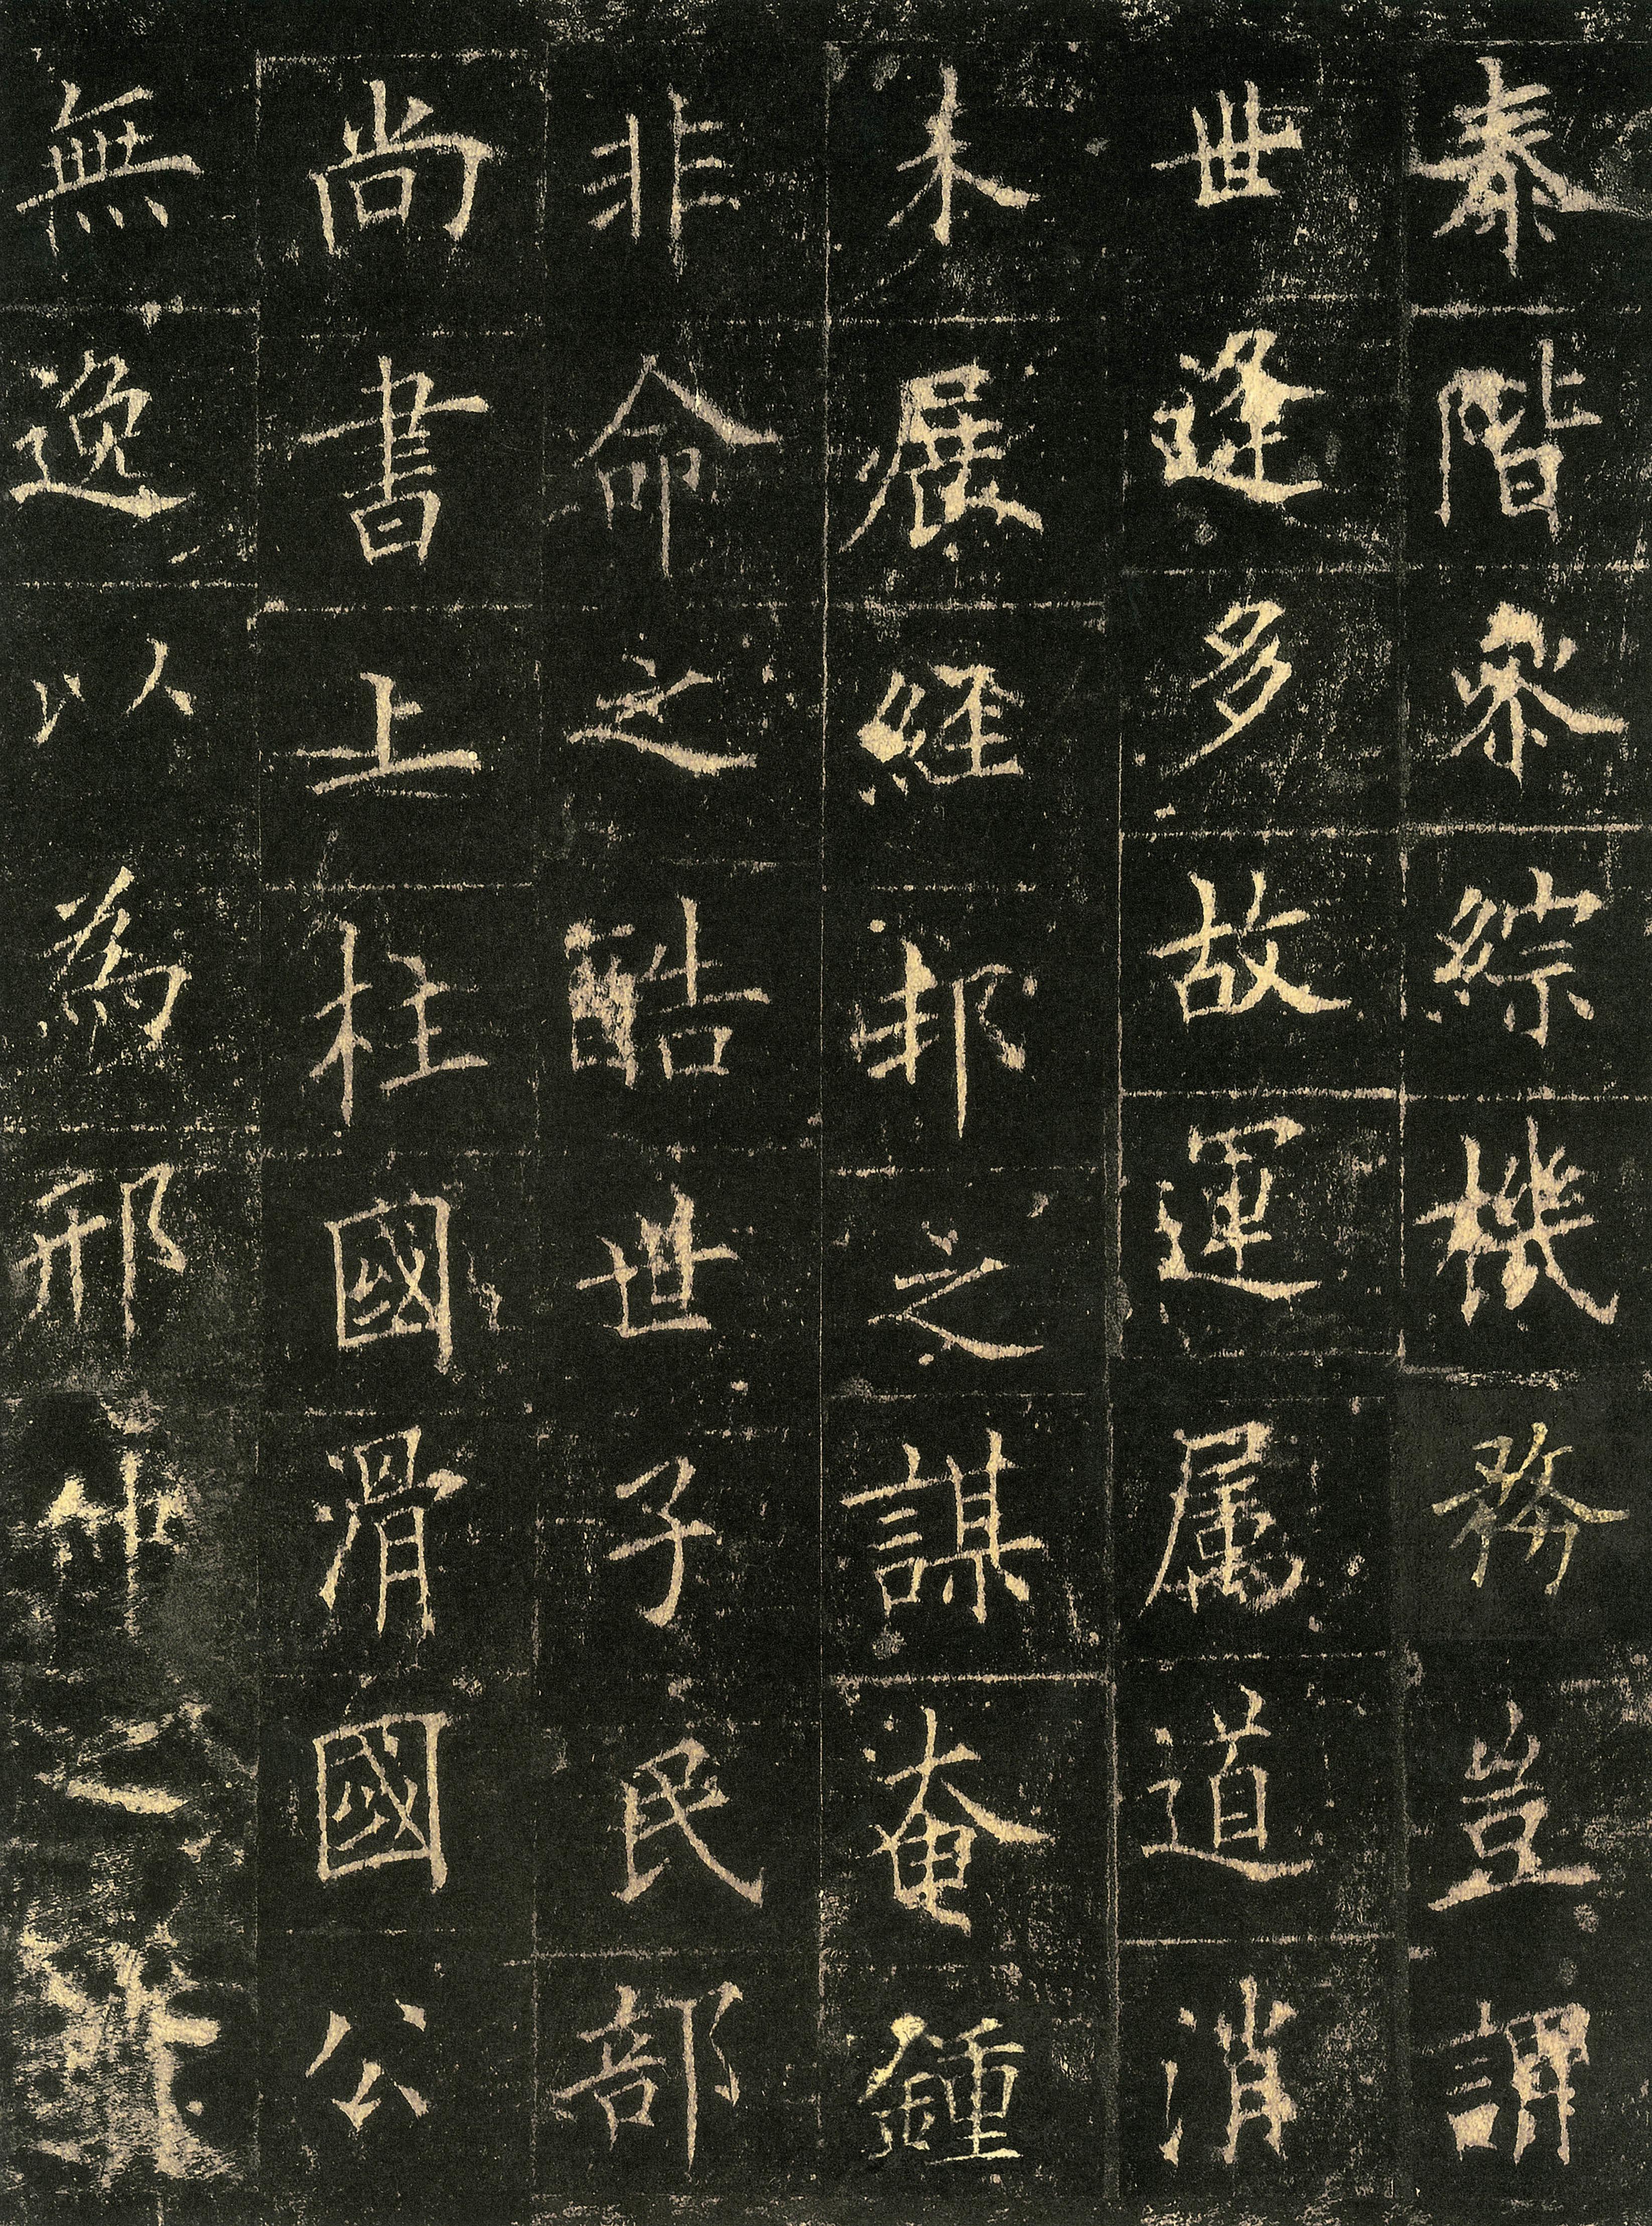 泰階叅綜機務豈謂
世逢多故運属道消
未展經邦之謀奄鍾
非命之酷世子民部
尚書上柱國滑國公
無逸以為邢山之